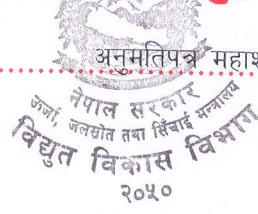 अनुमतिपत्र महाश
नेपाल सरकार
ऊर्जा, जलस्रोत तथा सिँचाई मन्त्रालय
विद्युत विकास विभाग
२०५०